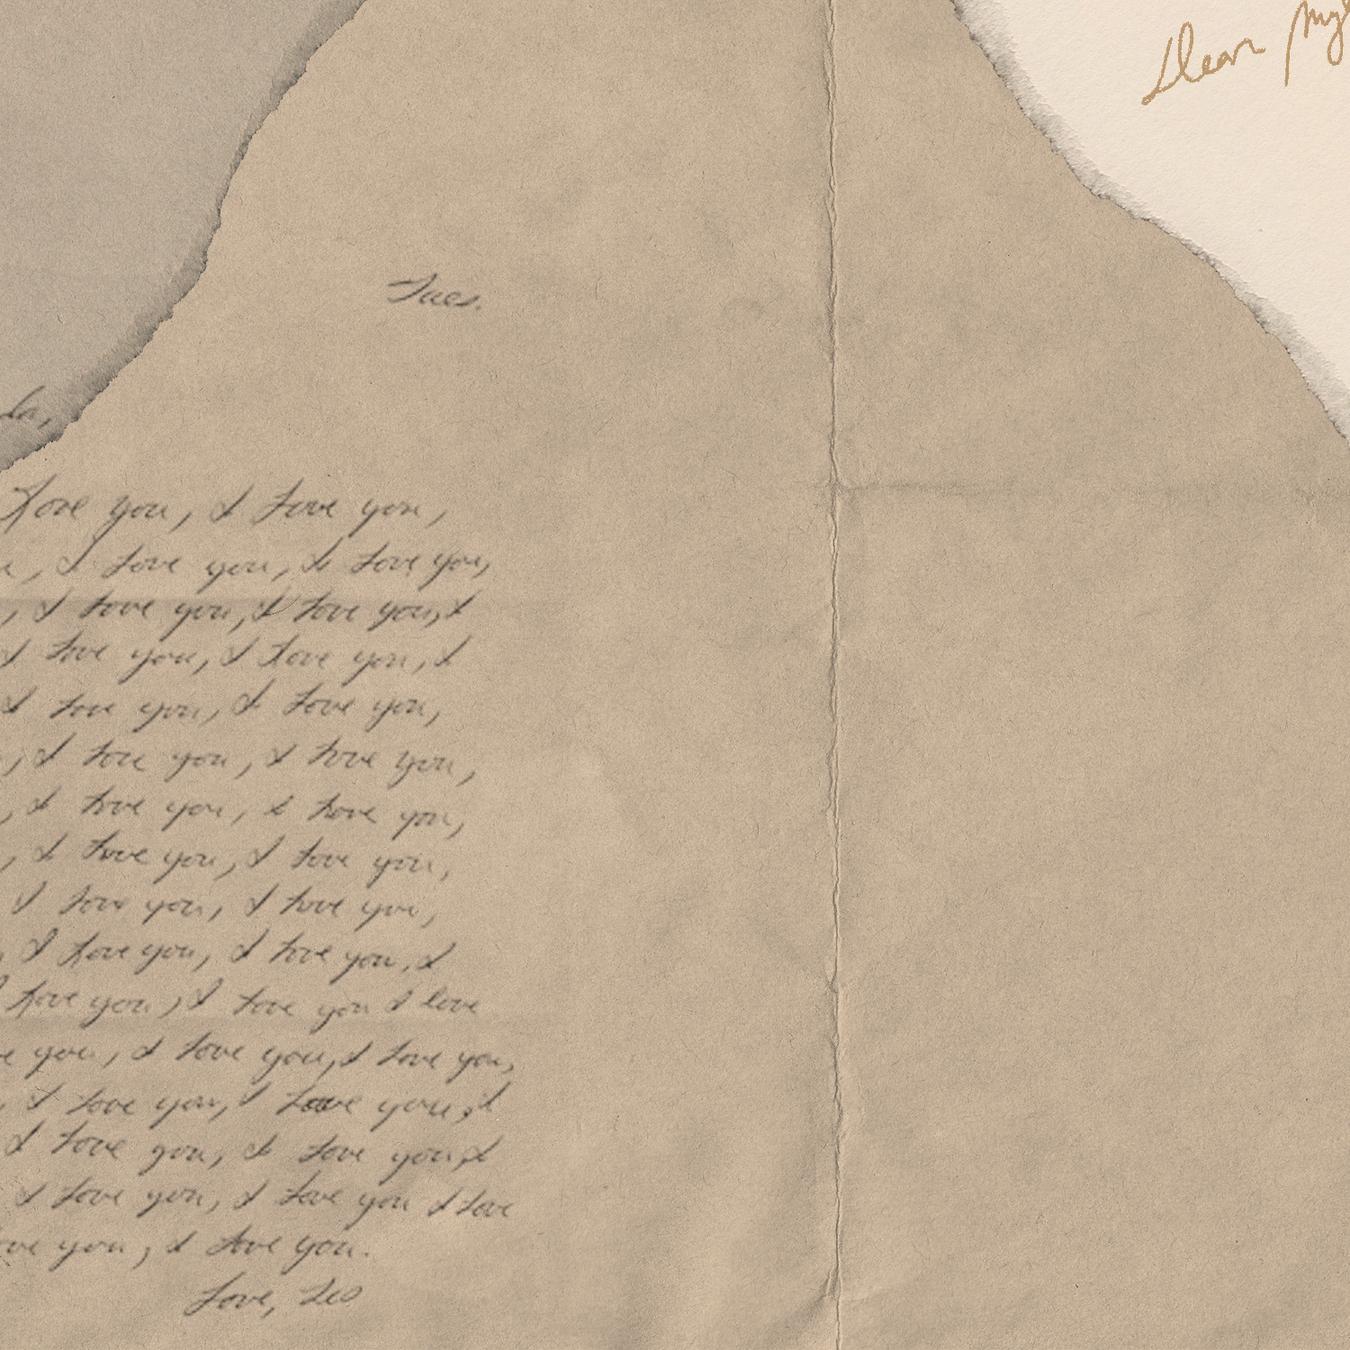 Dear
Tues.
da,
Love you, I Love you,
, I Love you, I Love you,
, I Love you, I Love you, I
I Love you, I Love you, I
I Love you, I Love you,
, I Love you, I Love you,
, I Love you, I Love you,
, I Love you, I Love you,
I Love you, I Love you,
, I Love you, I Love you, I
I Love you, I Love you I love
you, I Love you, I Love you,
, I Love you, I Love you, I
I Love you, I Love you, I
I Love you, I Love you I Love
you, I Love you.
Love, Leo